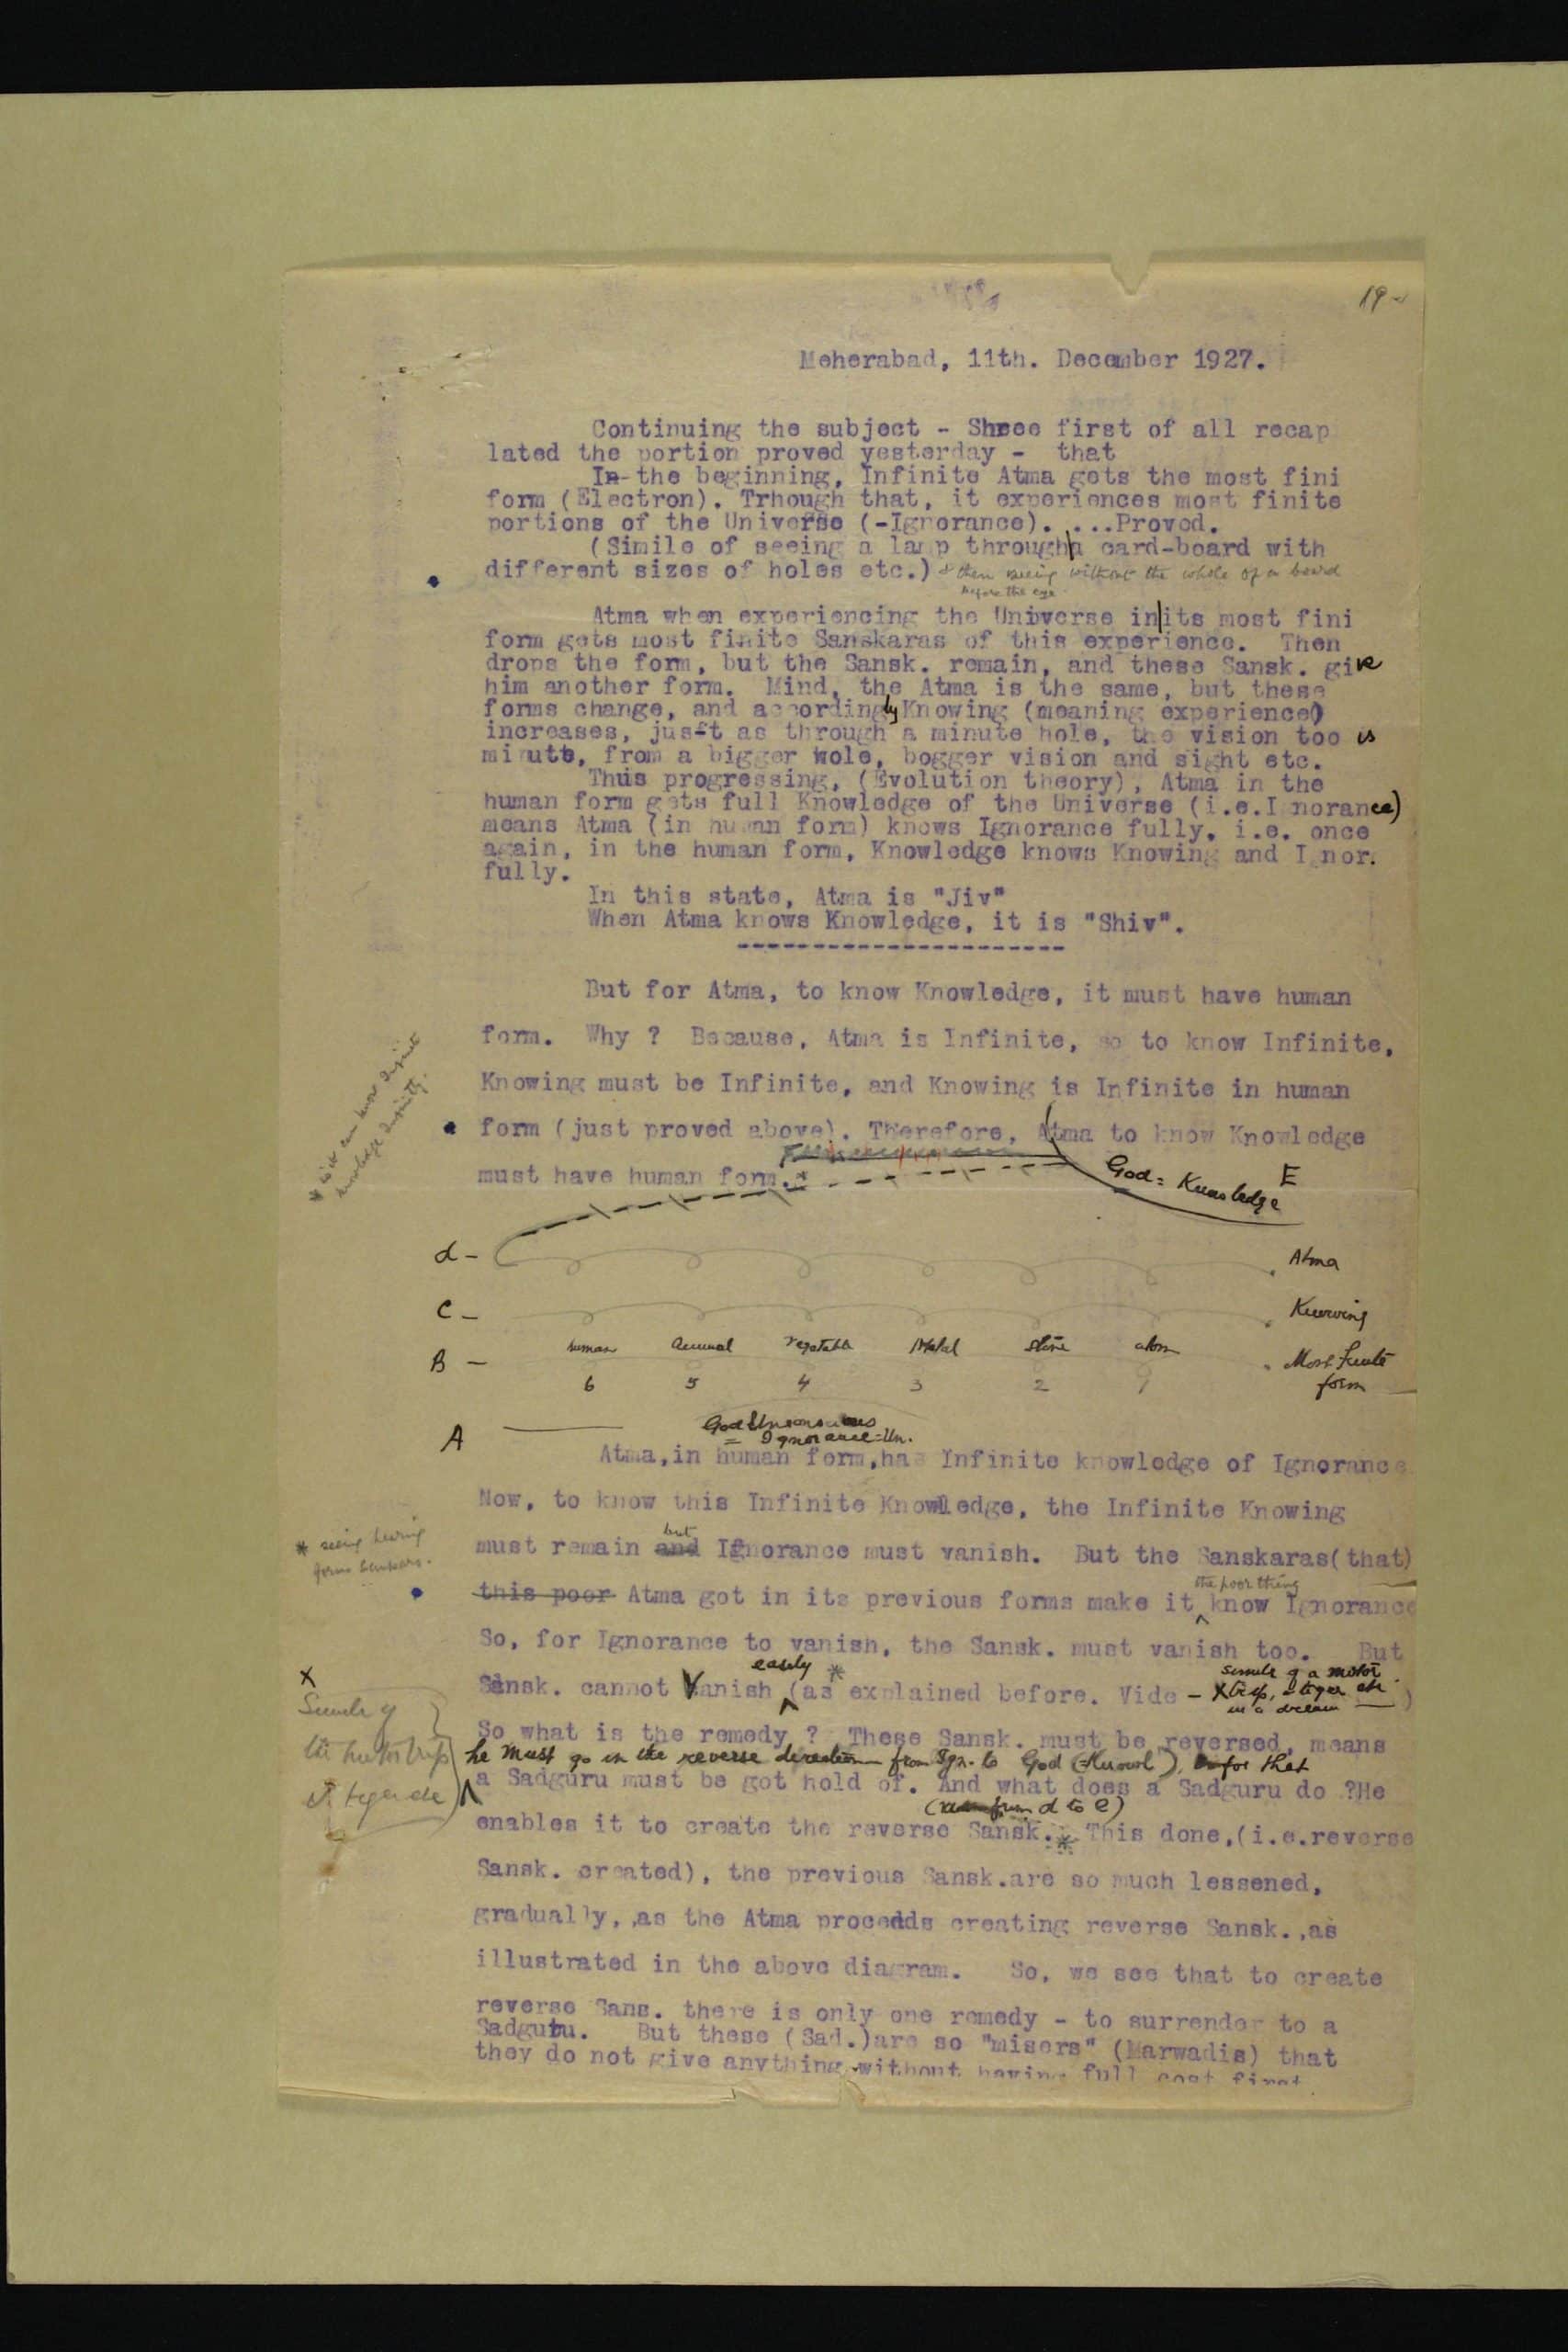 19
Meherabad, 11th. December 1927.
Continuing the subject - Shree first of all recap
lated the portion proved yesterday - that
In the beginning, Infinite Atma gets the most fini
form (Electron). Trhough that, it experiences most finite
portions of the Universe (-Ignorance). ...Proved.
(Simile of seeing a lamp through a card-board with
different sizes of holes etc.) & then seeing without the whole of a board
before the eye
Atma when experiencing the Universe in its most fini
form gets most finite Sanskaras of this experience. Then
drops the form, but the Sansk. remain, and these Sansk. give
him another form. Mind, the Atma is the same, but these
forms change, and accordingly Knowing (meaning experience)
increases, just as through a minute hole, the vision too is
minute, from a bigger hole, bogger vision and sight etc.
Thus progressing, (Evolution theory), Atma in the
human form gets full Knowledge of the Universe (i.e.Ignorance)
means Atma (in human form) knows Ignorance fully, i.e. once
again, in the human form, Knowledge knows Knowing and Ignor.
fully.
In this state, Atma is "Jiv"
When Atma knows Knowledge, it is "Shiv".
----------------------
But for Atma, to know Knowledge, it must have human
form. Why ? Because, Atma is Infinite, so to know Infinite,
Knowing must be Infinite, and Knowing is Infinite in human
form (just proved above). Therefore, Atma to know Knowledge
must have human form.*
God = Knowledge E
d - Atma
C - Knowing
human animal vegetable Metal stone atom
B - Most finite
form
6 5 4 3 2 1
A
God Unconscious
= Ignorance = Un.
Atma,in human form,has Infinite knowledge of Ignorance
Now, to know this Infinite Knowledge, the Infinite Knowing
must remain and but Ignorance must vanish. But the Sanskaras(that)
* seeing hearing
forms Sanskars.
this poor Atma got in its previous forms make it the poor thing know Ignorance
So, for Ignorance to vanish, the Sansk. must vanish too. But
Sansk. cannot Vanish easily * (as explained before. Vide - X simile of a motor
trip, a tiger etc.
in a dream )
X
Simile of
the motor trip
& tiger etc
So what is the remedy ? These Sansk. must be reversed, means
he must go in the reverse direction from Ign. to God (=Knowl), for that
a Sadguru must be got hold of. And what does a Sadguru do ?He
(from d to e)
enables it to create the reverse Sansk.* This done,(i.e.reverse
Sansk. created), the previous Sansk.are so much lessened,
gradually, ,as the Atma procedds creating reverse Sansk.,as
illustrated in the above diagram. So, we see that to create
reverse Sans. there is only one remedy - to surrender to a
Sadguru. But these (Sad.)are so "misers" (Marwadis) that
they do not give anything without having full cost first